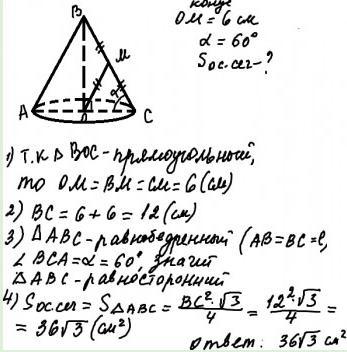 конус
OM = 6 см
α = 60°
Sос.сеч - ?
B
M
α
A
O
C
1) Т.к Δ BOC - прямоугольный,
то OM = BM = CM = 6 (см)
2) BC = 6 + 6 = 12 (см)
3) Δ ABC - равнобедренный (AB = BC = ℓ,
∠ BCA = α = 60° значит
Δ ABC - равносторонний
4) Sос.сеч = SΔABC = BC²·√3/4 = 12²·√3/4 =
= 36√3 (см²)
ответ: 36√3 см²